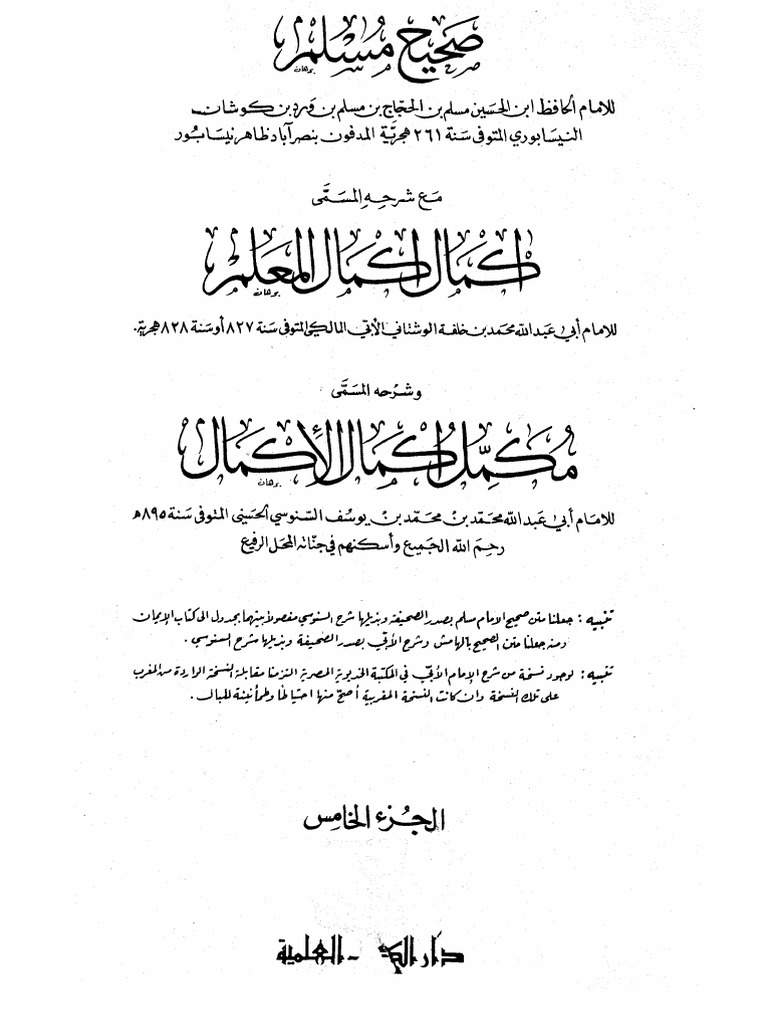 صَحِيح مُسْلِم
برهان
للامام الحافظ ابن الحسين مسلم بن الحجاج بن مسلم بن ورد بن كوشان
النيسابوري المتوفى سنة ٢٦١ هجرية المدفون بنصر آباد ظاهر نيسابور
مَع شرحِهِ المسَمَّى
اكمَال اكمَال المُعَلِم
برهان
للامام أبي عبد الله محمد بن خلفة الوشتاني الأُبّي المالكي المتوفى سَنة ٨٢٧ أو سَنة ٨٢٨ هجرية.
وشَرْحه المسَمَّى
مُكَمِّل اكمَال الإكمَال
برهان
للامَام أبي عَبد الله محمّد بن محمّد بن يوسُف السّنوسي الحسَيني المتوفى سَنة ٨٩٥ ه
رحِمَ الله الجَميع وأسكنهم في جنّاته المحل الرفيع
تنبيه : جعلنا متن صحيح الامام مسلم بصدر الصحيفة وبذيلها شرح السنوسي مفصولا بينهما بجدول الى كتاب الايمان
ومنه جعلنا متن الصحيح بالهامش وشرح الأبّي بصدر الصحيفة وبذيلها شرح السنوسي .
تنبيه : لوجود نسخة من شرح الإمام الأبّي في المكتبة الخديوية المصرية التزمنا مقابلة النسخة الواردة من المغرب
على تلك النسخة وان كانت النسخة المغربية أصحّ منها احتياطًا وطمأنينة للبال .
الجُزء الخامس
دَار الكـ - العلمية